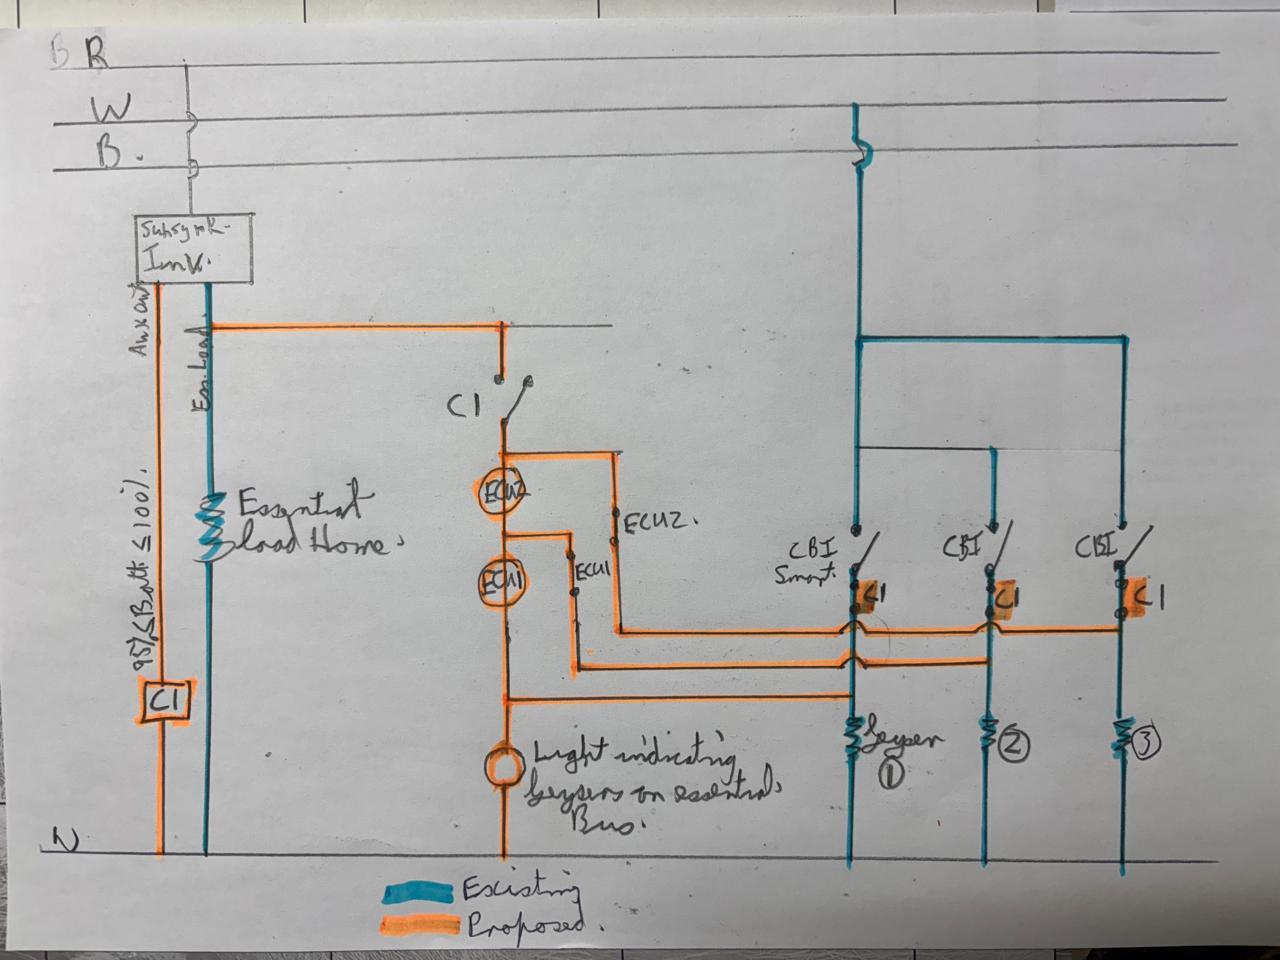 B R
W
B.
Sunsynk-
Inv.
Aux Out
Ess. Load.
95% ≤ Batt ≤ 100%.
C1
Essential
load Home.
C1
ECU2
ECU2.
ECU1
ECU1
CBI
Smart.
CBI
CBI
C1
C1
C1
Light indicating
Geysers on essential
Bus.
Geyser
1
2
3
N
Existing
Proposed.